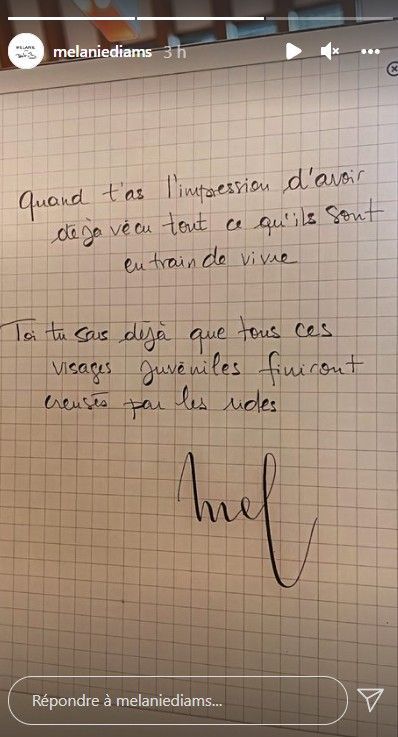 melaniediams 3 h
Quand t'as l'impression d'avoir
déjà vécu tout ce qu'ils sont
en train de vivre
Toi tu sais déjà que tous ces
visages juvéniles finiront
creusés par les rides
Mel
Répondre à melaniediams...